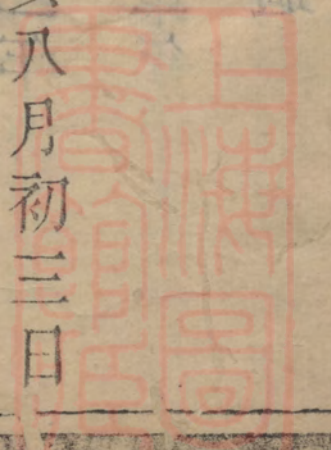 八月初三日
上海圖
書館藏